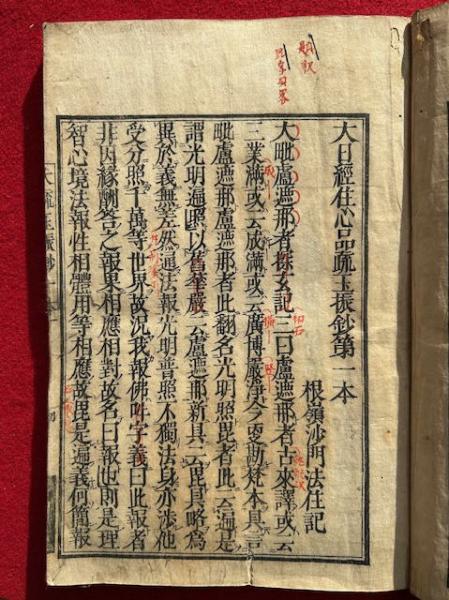 大日經住心品疏玉振鈔第一本
根嶺沙門法住記
大毗盧遮那者探玄記三曰盧遮那者古來譯或云
三業滿或云放滿或云廣博嚴淨今更斯梵本具言
毗盧遮那盧遮那者此翻名光明照毘者此云遍是
謂光明遍照以舊華嚴云盧遮那新具云毘但略為
異於義無差然通法報光明普照不獨法身亦渉他
受分照千萬等世界故況我報佛吽字義曰此報者
非因緣酬答之報果相應相對故名曰報也則是理
智心境法報性相體用等相應故毘是遍義何簡報